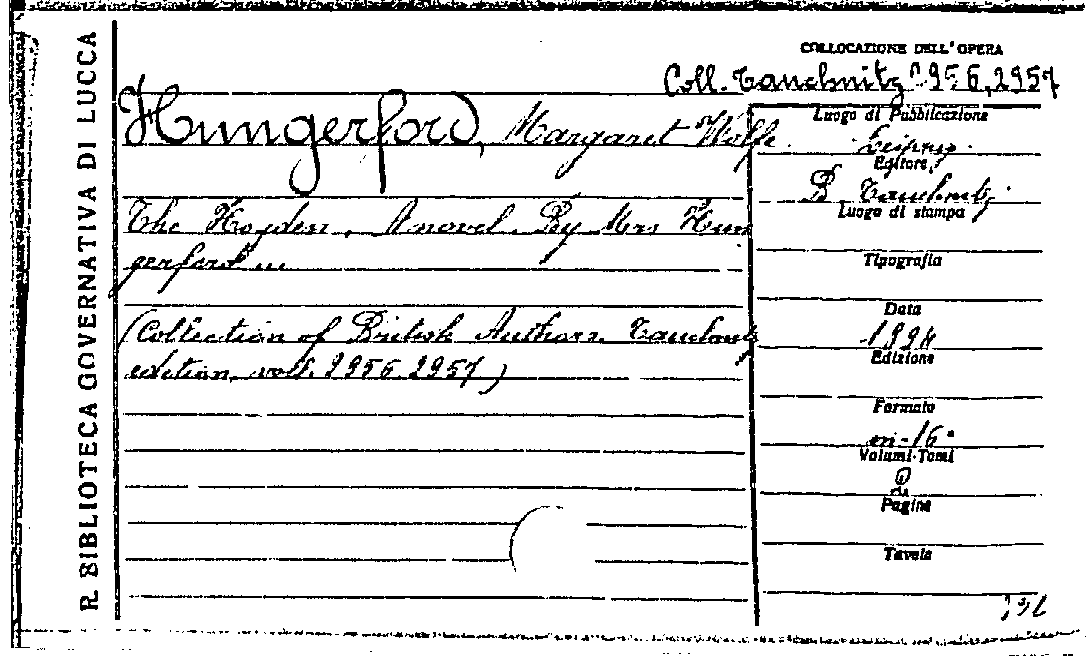 R. BIBLIOTECA GOVERNATIVA DI LUCCA
COLLOCAZIONE DELL'OPERA
Coll. Tauchnitz 2956, 2957
Hungerford, Margaret Wolfe.
The Hoyden. A novel. By Mrs Hun
gerford ...
(Collection of British Authors. Tauchnitz
edition, voll. 2956. 2957)
Luogo di Pubblicazione
Leipzig.
Editore
B. Tauchnitz.
Luogo di stampa
Tipografia
Data
1894
Edizione
Formato
in-16°
Volumi-Tomi
2
Pagine
Tavole